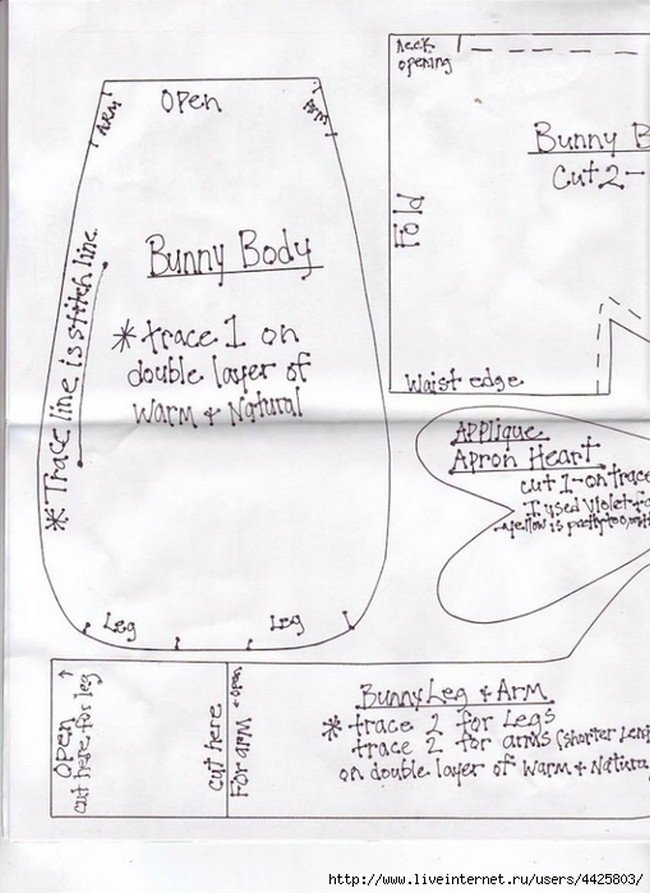 Open
ARM
ARM
Bunny Body
* trace 1 on
double layer of
Warm & Natural
* Trace line is stitch line.
Leg
Leg
neck
opening
Bunny B
Cut 2 -
Fold
Waist edge
Applique
Apron Heart
cut 1 - on trace
I used Violet-
yellow is pretty too,
Open
cut here for leg
cut here
For arm & open
Bunny Leg & Arm
* trace 2 for Legs
trace 2 for arms (shorter Len
on double layer of Warm & Natura
http://www.liveinternet.ru/users/4425803/